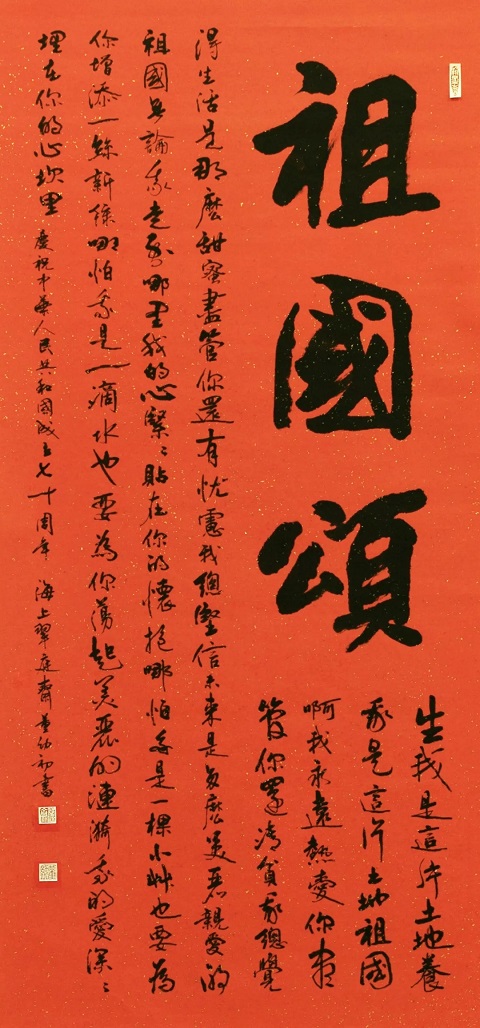 祖國頌
生我是這片土地養
我是這片土地祖國
啊我永遠熱愛你盡
管你還清貧我總覺
得生活是那麼甜蜜盡管你還有忧慮我總堅信未來是多麼美麗親愛的
祖國無論我走到哪里我的心緊々貼在你的懷抱哪怕我是一棵小艸也要為
你增添一絲新綠哪怕我是一滴水也要為你蕩起美麗的漣漪我的愛深々
埋在你的心坎里 慶祝中華人民共和國成立七十周年 海上翠庭齋董幼初書